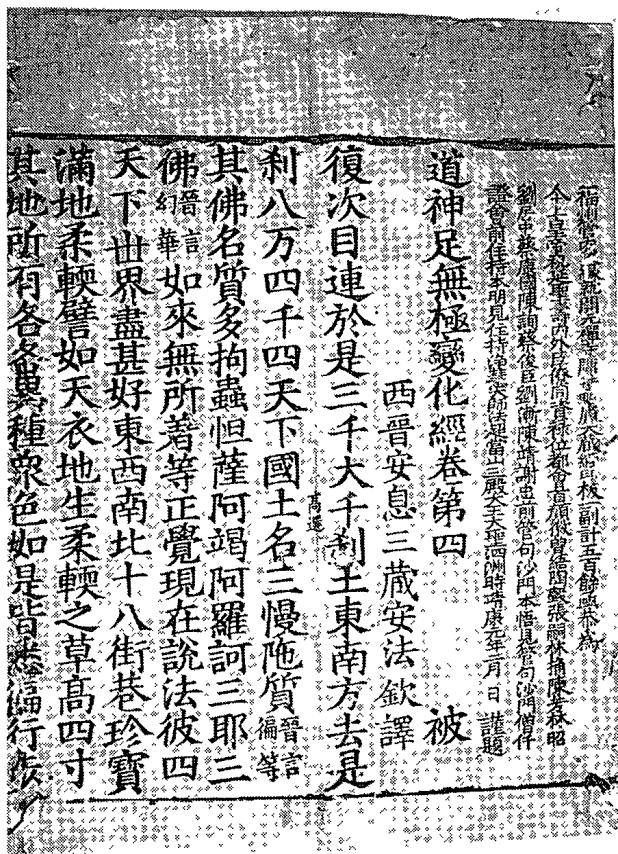 福州管內 開元禪 大藏經板一副計五百餘函恭爲
今上皇帝 內外臣僚同資祿位都會 顏 陳芳林昭
劉居中蔡康國陳詢蔡俊臣劉漸陳靖謝忠前管句沙門本悟見管句沙門僧仟
證會前住持本明見住持 大師 靖康元年二月 日 謹題
道神足無極變化經卷第四 被
西晉安息三藏安法欽譯
復次目連於是三千大千刹土東南方去是
刹八万四千四天下國土名三慢陁質晉言徧等
高選
其佛名質多拘蟲怛薩阿竭阿羅訶三耶三
佛晉言幻華如來無所著等正覺現在說法彼四
天下世界盡甚好東西南北十八街巷珍寶
滿地柔輭譬如天衣地生柔輭之草高四寸
其地所有各各異種衆色如是皆悉徧行